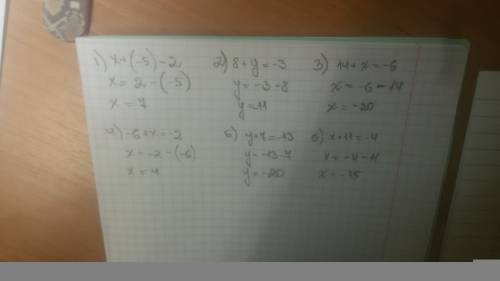 1) x+(-5)=2
x= 2-(-5)
x= 7
2) 8+y=-3
y=-3-8
y=11
3) 14+x=-6
x=-6-14
x=-20
4) -6+x=-2
x=-2-(-6)
x=4
5) y+7=-13
y=-13-7
y=-20
6) x+11=-4
x=-4-11
x=-15